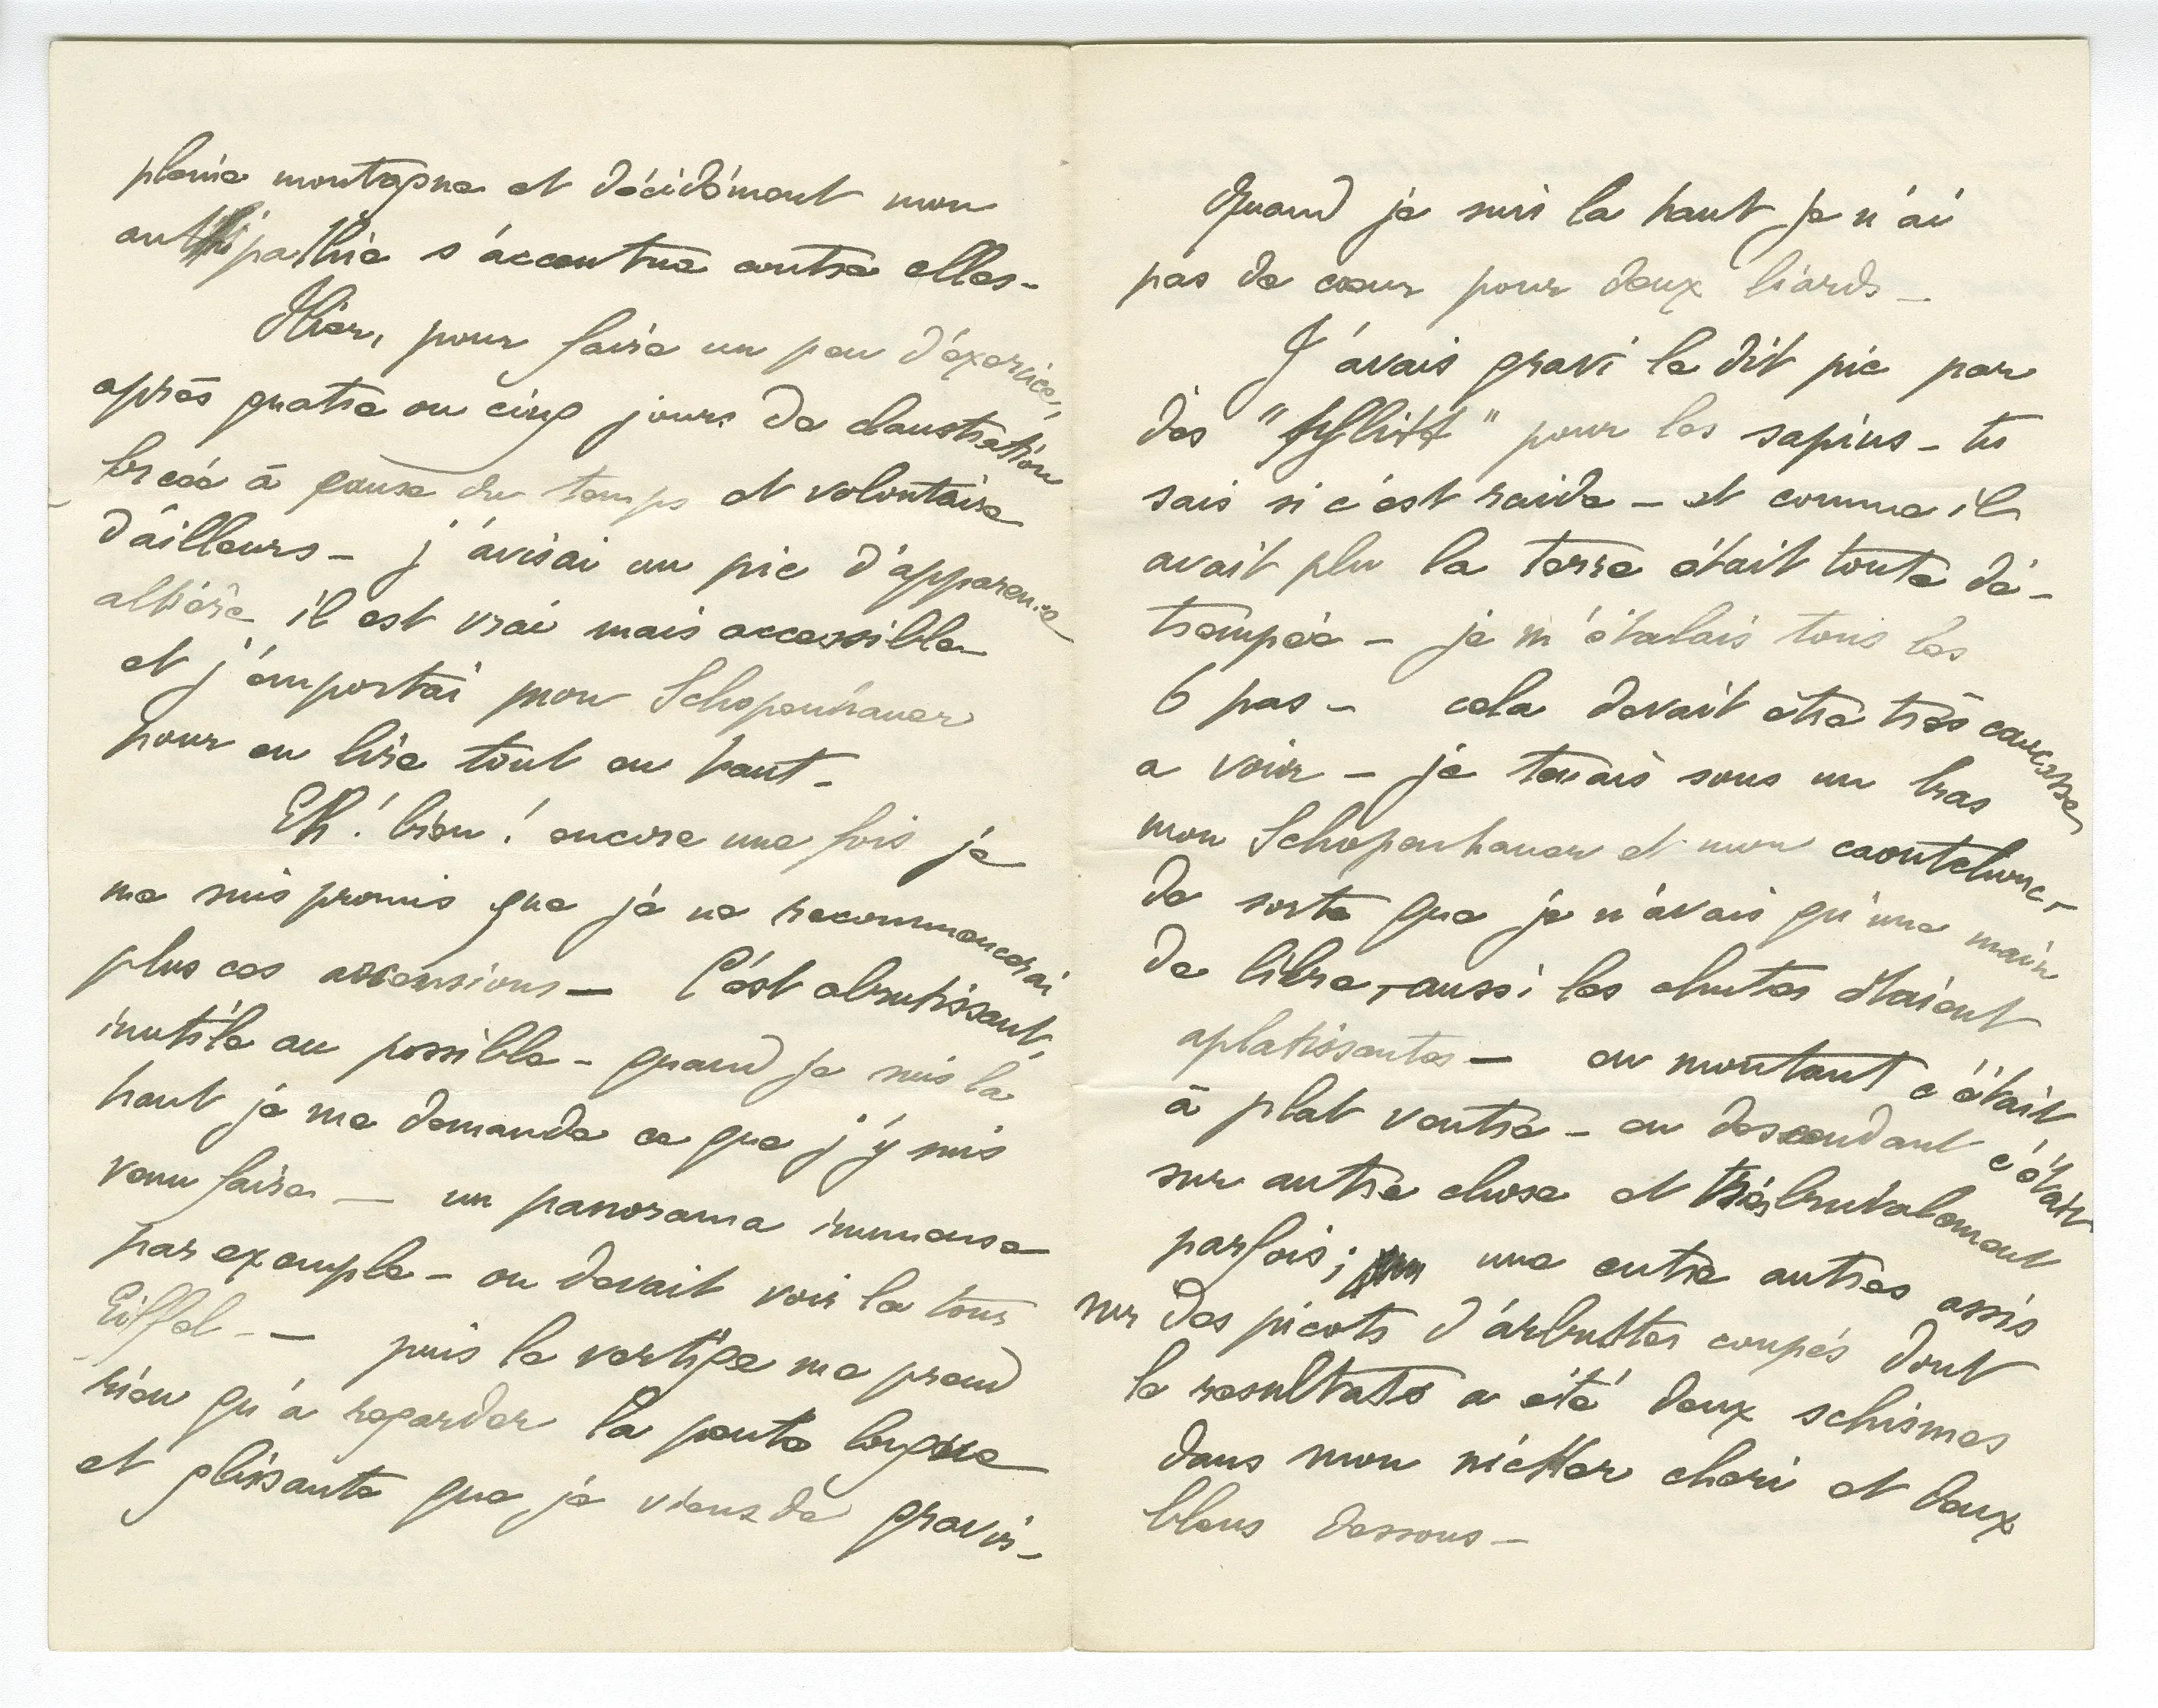 pleine montagne et décidément mon
antipathie s'accentue contre elles -
Hier, pour faire un peu d'éxercice,
après quatre ou cinq jours de claustration
forcée à cause du temps et volontaire
d'ailleurs - j'avisai un pic d'apparence
altière il est vrai mais accessible
et j'emportai mon Schopenhauer
pour en lire tout en haut -
Eh ! bien ! encore une fois je
me suis promis que je ne recommencerai
plus ces ascensions - C'est abrutissant,
inutile au possible - quand je suis la
haut je me demande ce que j'y suis
venu faire - un panorama immense
par exemple - on devait voir la tour
Eiffel - - puis le vertige me prend
rien qu'a regarder la pente longue
et glissante que je viens de gravir -
Quand je suis la haut je n'ai
pas de cœur pour deux liards -
J'avais gravi le dit pic par
des "schlitt" pour les sapins - tu
sais si c'est raide - et comme il
avait plu la terre était toute dé-
trempée - je m'étalais tous les
6 pas - cela devait être très cocasse
a voir - je tenais sous un bras
mon Schopenhauer et mon caoutchouc -
de sorte que je n'avais qu'une main
de libre, - aussi les chutes étaient
aplatissantes - en montant c'était
à plat ventre - en descendant c'était
sur autre chose et très brutalement
parfois ; une entre autres assis
sur des picots d'arbustes coupés dont
le resultats a été deux schismes
dans mon chéri et deux
bleus dessous -